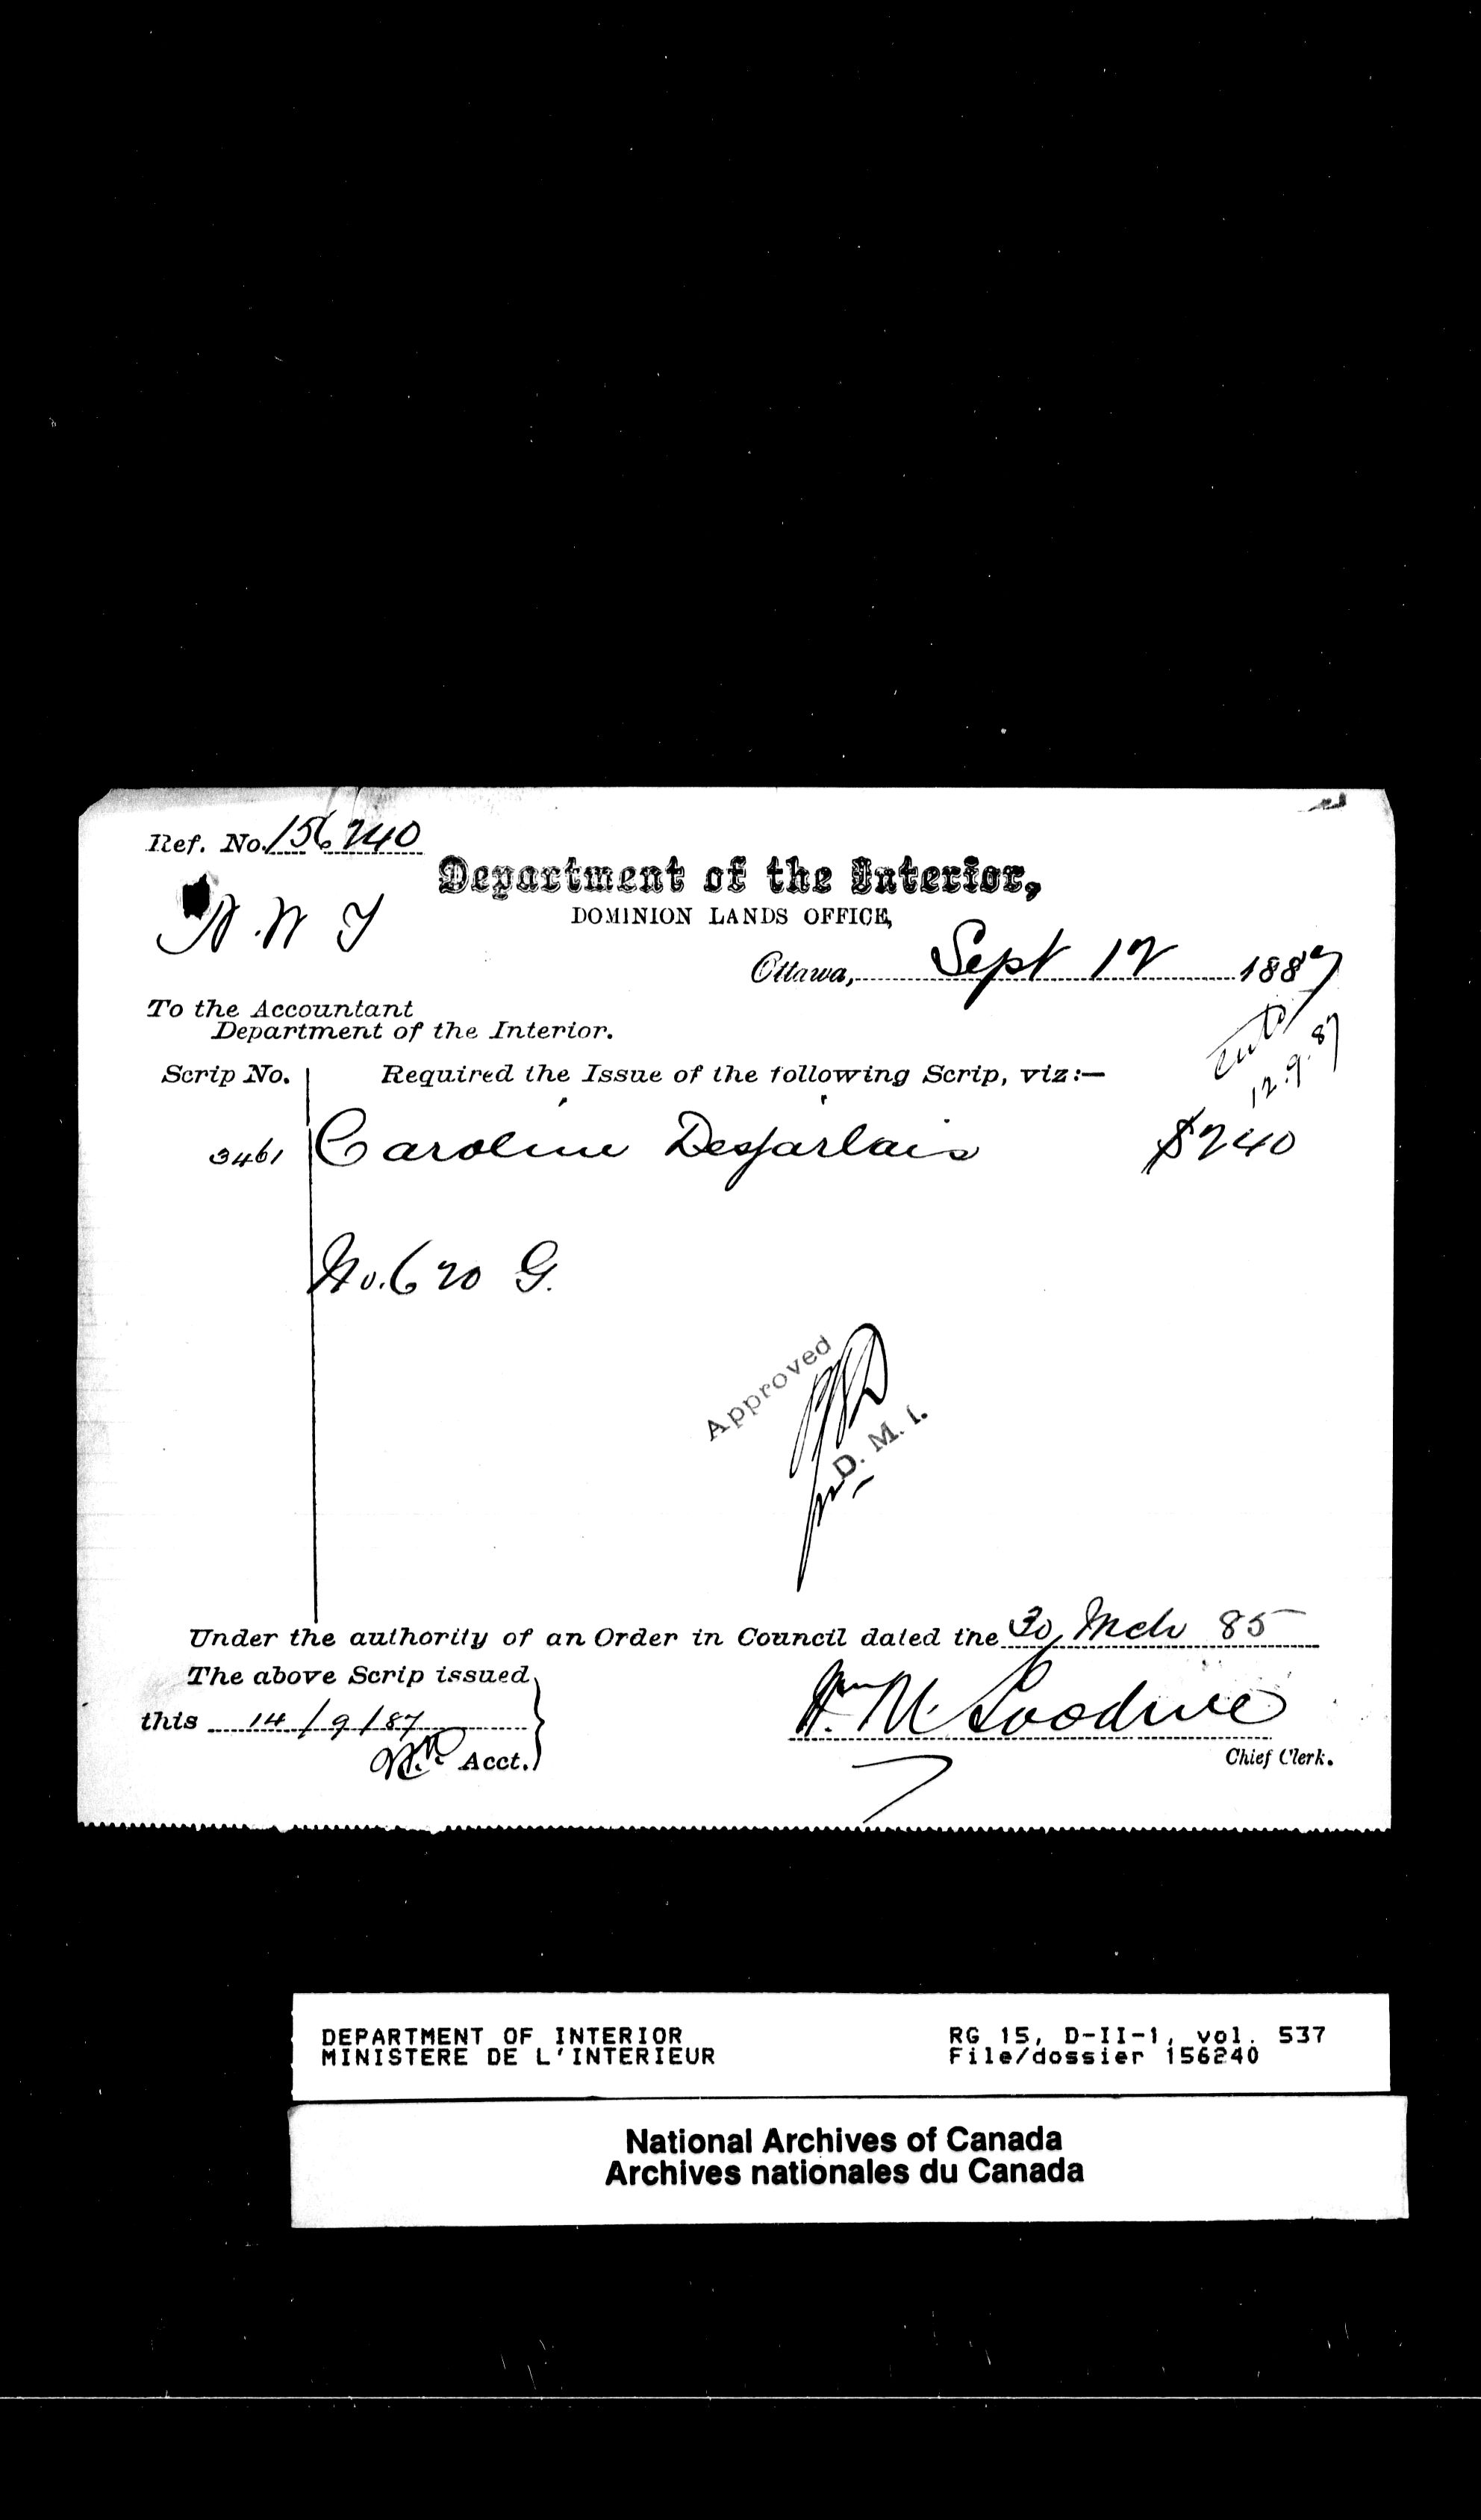 Ref. No. 156240
Department of the Interior,
N.W.T
DOMINION LANDS OFFICE,
Ottawa, Sept 12 1887
To the Accountant
Department of the Interior.
12.9.87
Scrip No. Required the Issue of the following Scrip, viz:—
3461 Caroline Desjarlais $240
No. 620 G.
Approved
D. M. I.
Under the authority of an Order in Council dated the 30 Mch 85
The above Scrip issued
this 14/9/87
Wm M Goodeve
Acct.
Chief Clerk.
DEPARTMENT OF INTERIOR RG 15, D-II-1, vol. 537
MINISTERE DE L'INTERIEUR File/dossier 156240
National Archives of Canada
Archives nationales du Canada